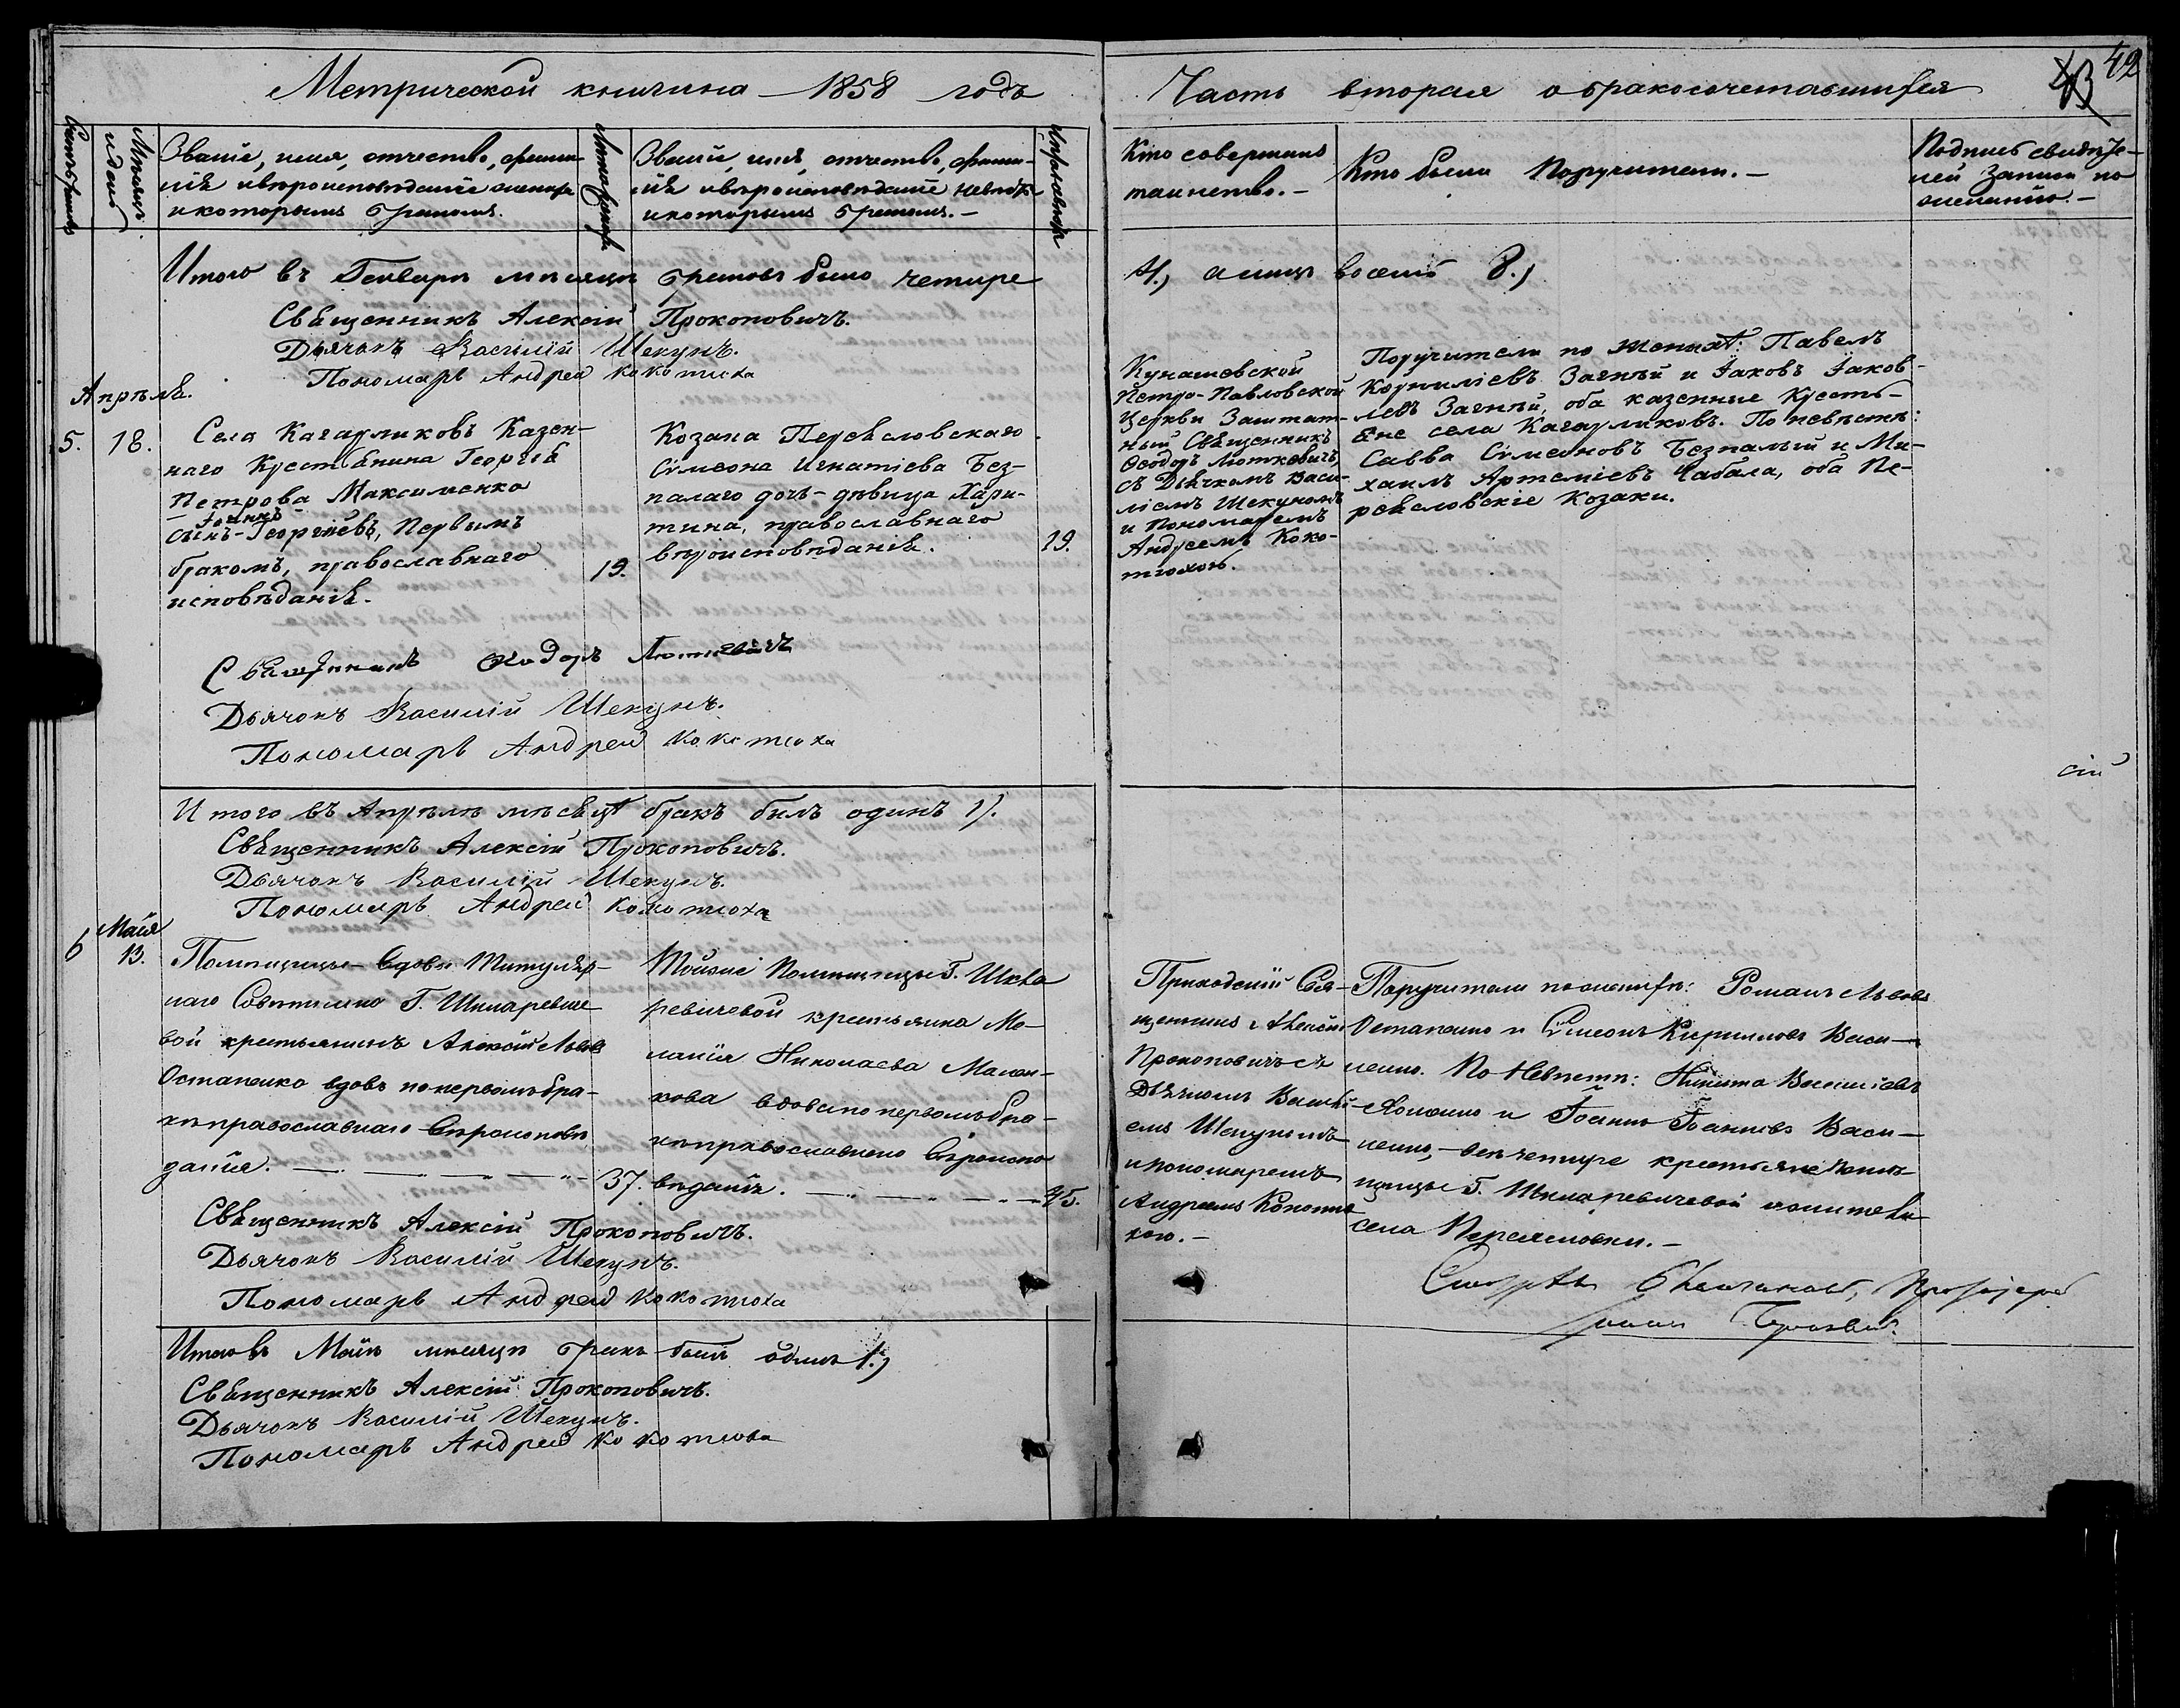 Метрической книги на 1858 годъ
Часть вторая о бракосочетавшихся
42
Счетъ браковъ
Мѣсяцъ и день
Званіе, имя, отчество, фами-
лія и вѣроисповѣданіе жениха
и которымъ бракомъ.
Лѣта жениха
Званіе, имя, отчество, фами-
лія и вѣроисповѣданіе невѣсты
и которымъ бракомъ. –
Кто совершалъ
таинство. –
Кто были Поручители. –
Подпись свидѣте-
лей записи по
желанію. –
Итого въ Генварѣ мѣсяцѣ браковъ было четыре
4.) а лицъ восемь 8.)
Священникъ Алексій Прокоповичъ.
Дьячокъ Василій Шекунъ.
Пономарь Андрей Кокотюха
Апрѣля.
5. 18.
Села Кагарликовъ Казен-
наго Крестьянина Георгія
Петрова Максименка
Іоаннъ
сынъ-Георгіевъ, Первымъ
бракомъ, православнаго
исповѣданія.
19.
Козака Переясловскаго
Сімеона Игнатіева Без-
палаго дочь-дѣвица Хари-
тина, православнаго
вѣроисповѣданія.
19.
Кунашевской
Петро-Павловской
Церкви Заштат-
ный Священникъ
Ѳеодоръ Люткевичъ,
съ Дьячкомъ Васи-
ліемъ Шекуномъ
и Пономаремъ
Андреемъ Коко-
тюхою.
Поручители по женихѣ: Павелъ
Корниліевъ Загній и Іаковъ Іаков-
левъ Загній, оба казенные Кресть-
яне села Кагарликовъ. По невѣстѣ:
Савва Сімеоновъ Безпалый и Ми-
хаилъ Артеміевъ Чабала, оба Пе-
реясловскіе Козаки.
Священникъ Ѳеодоръ Люткевичъ
Дьячокъ Василій Шекунъ.
Пономарь Андрей Кокотюха
сій
Итого въ Апрѣлѣ мѣсяцѣ бракъ былъ одинъ 1).
Священникъ Алексій Прокоповичъ.
Дьячокъ Василій Шекунъ.
Пономарь Андрей Кокотюха
Мая
6 13.
Помѣщицы – вдовы Титуляр-
наго Совѣтника Г. Шкларевиче
вой крестьянинъ Алексій Львовъ
Остапенко вдовъ по первомъ бра-
кѣ православнаго вѣроисповѣ
данія.
37.
Тойже Помѣщицы Г. Шкла
ревичевой крестьянка Ме-
ланія Николаева Мален-
кова вдова по первомъ бра-
кѣ православнаго вѣроиспо
вѣданія.
45.
Приходскій Свя-
щенникъ Алексій
Прокоповичъ съ
Дьячкомъ Василі-
емъ Шекуномъ
и пономаремъ
Андреемъ Кокотю
хою. –
Поручители по женихѣ: Романъ Львовъ
Остапенко и Сімеонъ Кирилловъ Васи-
ленко. По Невѣстѣ: Никита Василіевъ
Хоменко и Іоаннъ Іоанновъ Васи-
ленко, – всѣ четыре крестьяне Помѣ-
щицы Г. Шкларевичевой жители
села Переясловки. –
Священникъ Алексій Прокоповичъ.
Дьячокъ Василій Шекунъ.
Пономарь Андрей Кокотюха
Итого въ Маѣ мѣсяцѣ бракъ былъ одинъ 1.)
Священникъ Алексій Прокоповичъ.
Дьячокъ Василій Шекунъ.
Пономарь Андрей Кокотюха